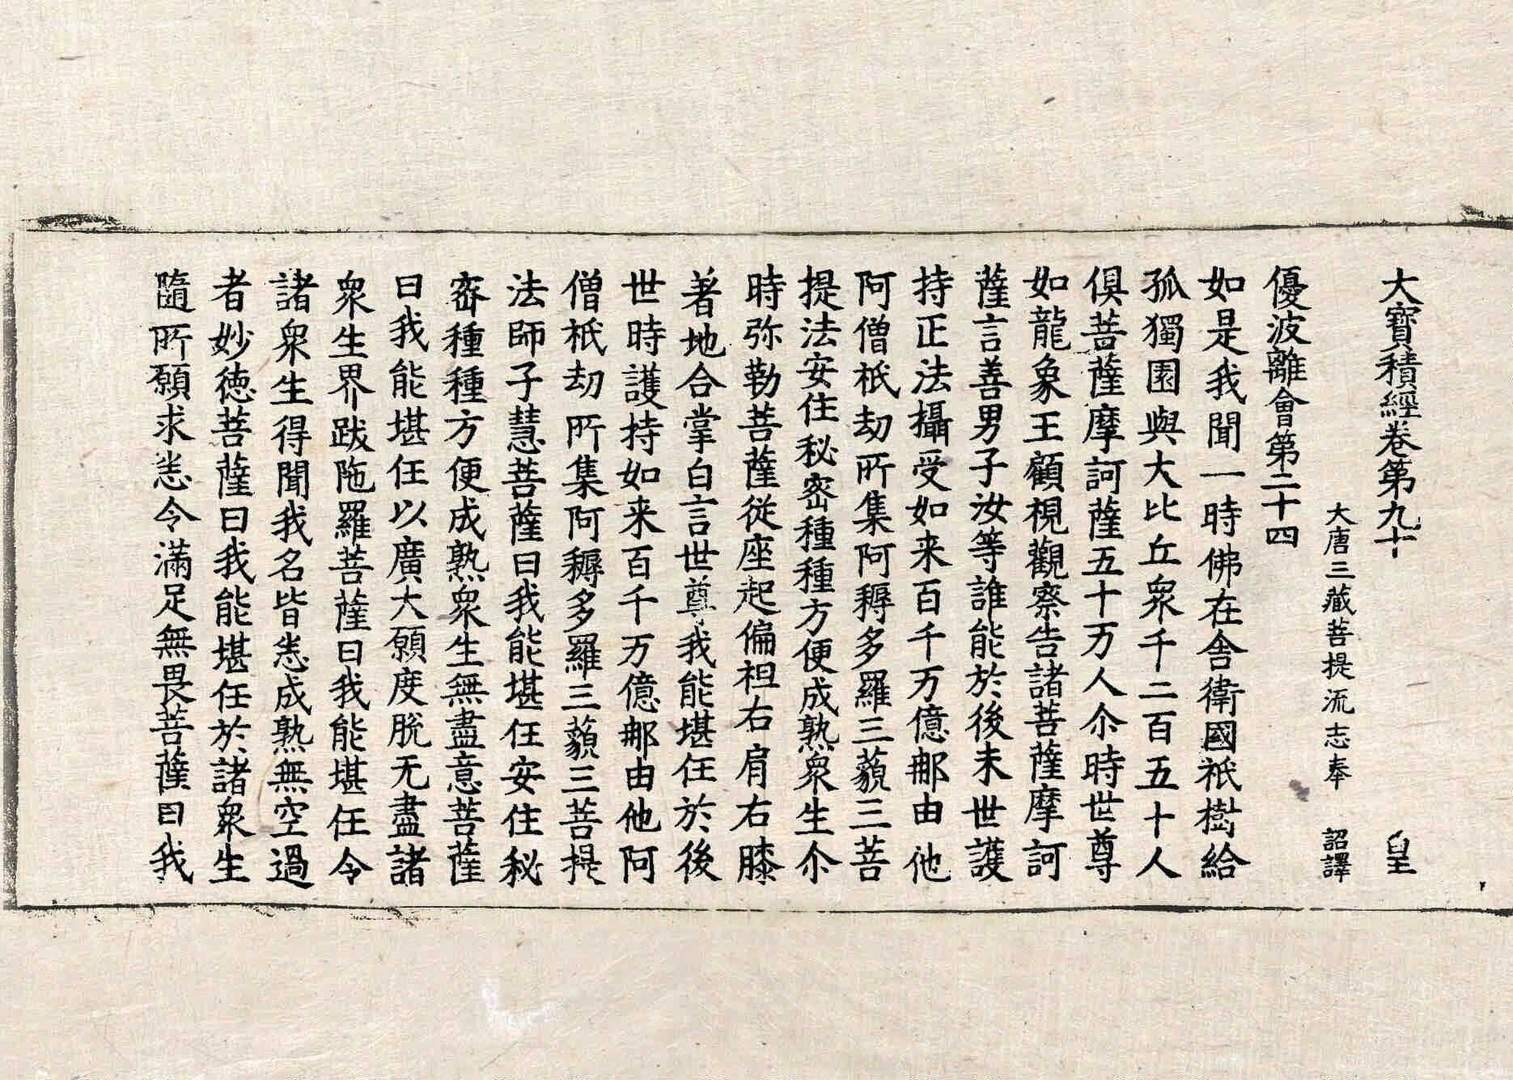 大寶積經卷第九十　皇
大唐三藏菩提流志奉　詔譯
優波離會第二十四
如是我聞一時佛在舍衛國祇樹給
孤獨園與大比丘衆千二百五十人
俱菩薩摩訶薩五十万人尒時世尊
如龍象王顧視觀察告諸菩薩摩訶
薩言善男子汝等誰能於後末世護
持正法攝受如来百千万億那由他
阿僧祇劫所集阿耨多羅三藐三菩
提法安住秘密種種方便成熟衆生尒
時弥勒菩薩従座起偏袒右肩右膝
著地合掌白言世尊我能堪任於後
世時護持如来百千万億那由他阿
僧祇劫所集阿耨多羅三藐三菩提
法師子慧菩薩曰我能堪任安住秘
密種種方便成熟衆生無盡意菩薩
曰我能堪任以廣大願度脫无盡諸
衆生界跋陁羅菩薩曰我能堪任令
諸衆生得聞我名皆悉成熟無空過
者妙徳菩薩曰我能堪任於諸衆生
隨所願求悉令滿足無畏菩薩曰我